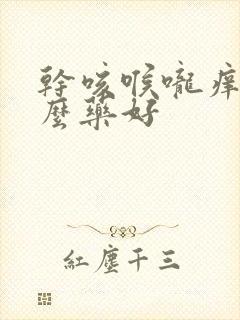 幹咳喉嚨痒
麼藥好
紅塵千三